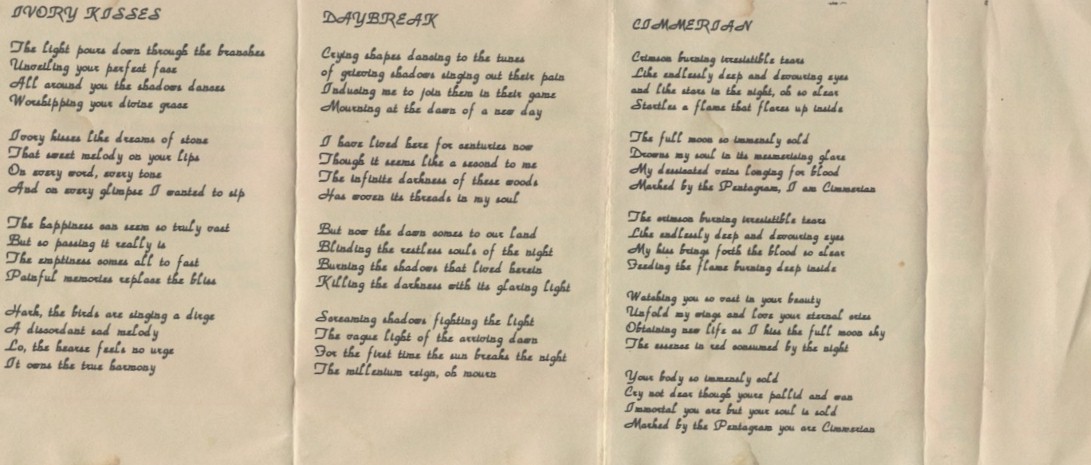 IVORY KISSES
The light pours down through the branches
Unveiling your perfect face
All around you the shadows dances
Worshipping your divine grace
Ivory kisses like dreams of stone
That sweet melody on your lips
On every word, every tone
And on every glimpse I wanted to sip
The happiness can seem so truly vast
But so passing it really is
The emptiness comes all to fast
Painful memories replace the bliss
Hark, the birds are singing a dirge
A discordant sad melody
Lo, the hearse feels no urge
It owns the true harmony
DAYBREAK
Crying shapes dancing to the tunes
of grieving shadows singing out their pain
Inducing me to join them in their game
Mourning at the dawn of a new day
I have lived here for centuries now
Though it seems like a second to me
The infinite darkness of these woods
Has woven its threads in my soul
But now the dawn comes to our land
Blinding the restless souls of the night
Burning the shadows that lived herein
Killing the darkness with its glaring light
Screaming shadows fighting the light
The vague light of the arriving dawn
For the first time the sun breaks the night
The millenium reign, oh mourn
CIMMERIAN
Crimson burning irresistible tears
Like endlessly deep and devouring eyes
and like stars in the night, oh so clear
Startles a flame that flares up inside
The full moon so immensly cold
Drowns my soul in its mesmerising glare
My dessicated veins longing for blood
Marked by the Pentagram, I am Cimmerian
The crimson burning irresistible tears
Like endlessly deep and devouring eyes
My kiss brings forth the blood so clear
Feeding the flame burning deep inside
Watching you so vast in your beauty
Unfold my wings and love your eternal cries
Obtaining new life as I kiss the full moon sky
The essence in red consumed by the night
Your body so immensly cold
Cry not dear though youre pallid and wan
Immortal you are but your soul is cold
Marked by the Pentagram you are Cimmerian